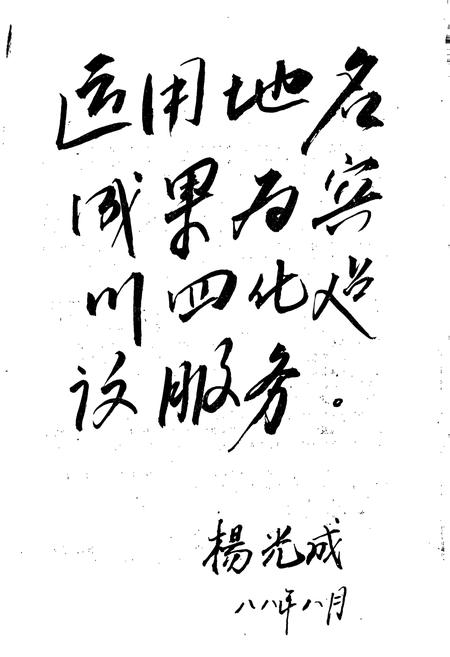 运用地名
成果为宾
川四化建
设服务。
楊光成
八八年八月